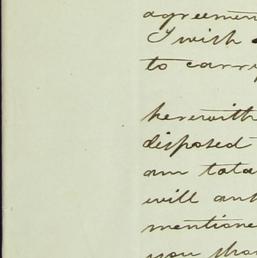 agreemen
I wish
to carry
herewith
disposed
am tota
will an
mentione
you sha